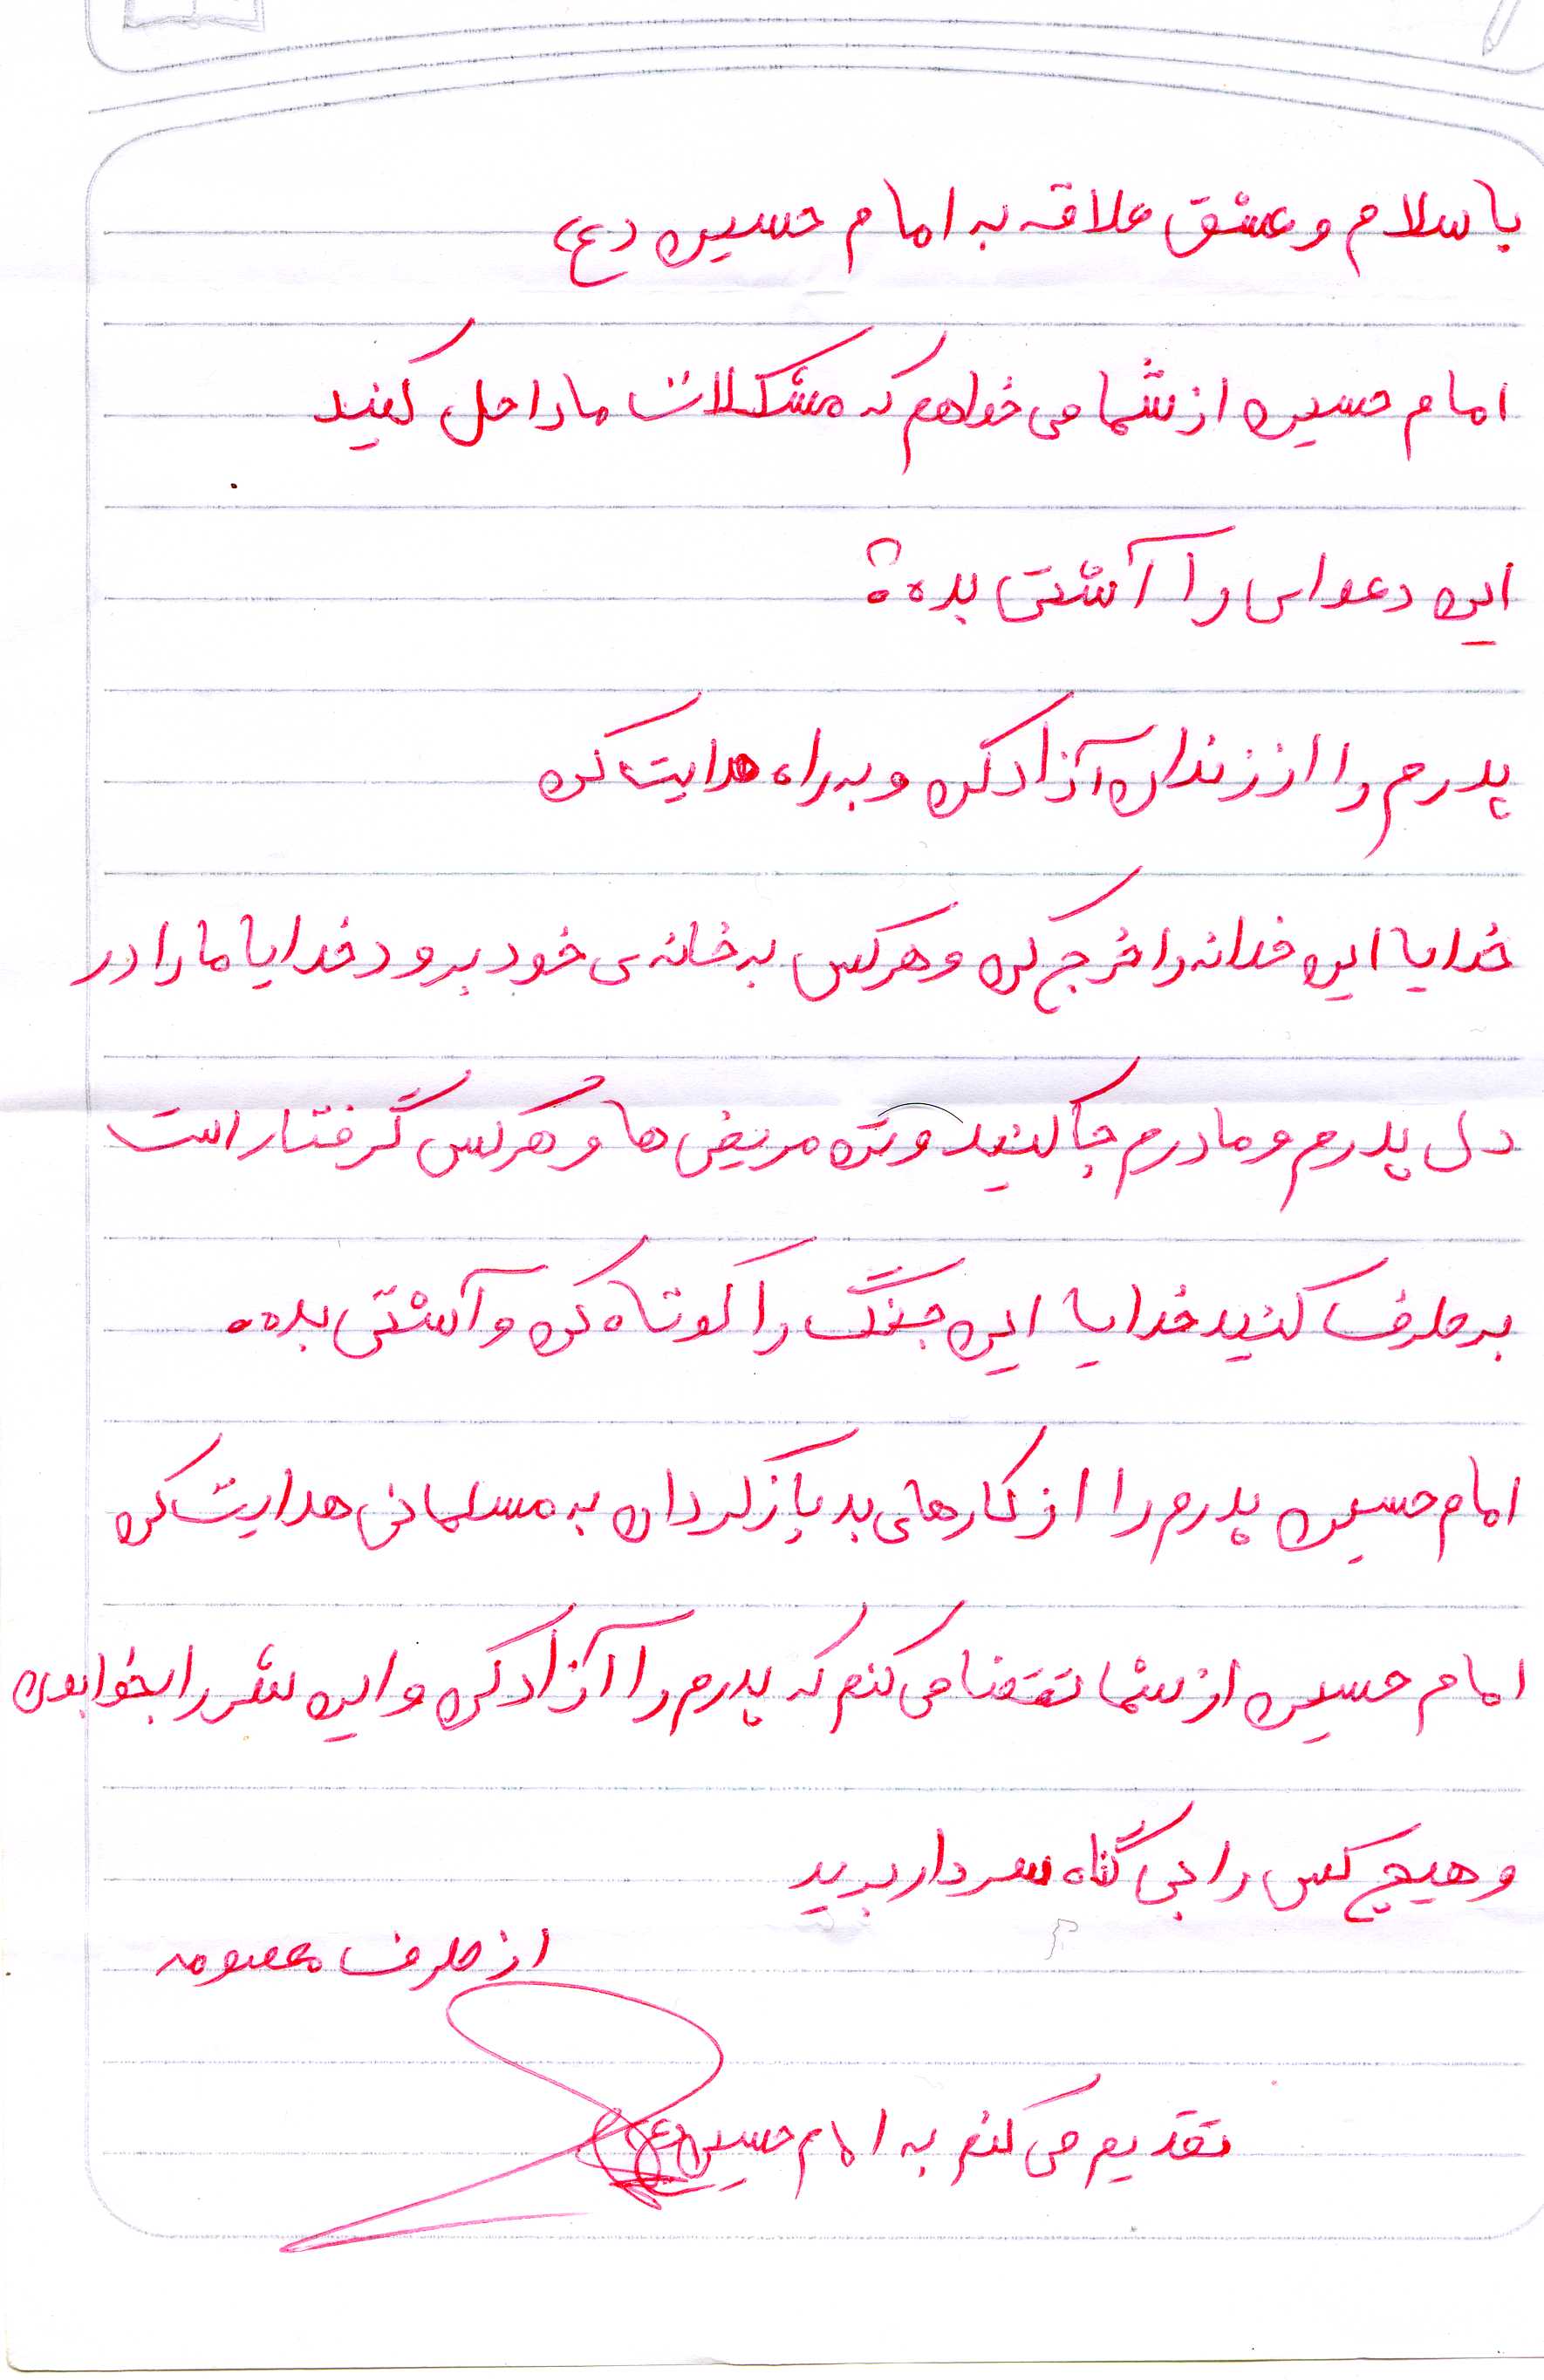 با سلام و عشق علاقه به امام حسین (ع)
امام حسین از شما می خواهم که مشکلات ما را حل کنید
این دعوای را آشتی بده؟
پدرم را از زندان آزاد کن و به راه هدایت کن
خدایا این خانه را فرج کن و هرکس به خانه ی خود برود خدایا ما را در
دل پدرم و مادرم جا کنید و مریض ها و هرکس گرفتار است
برطرف کنید خدایا این جنگ را کوتاه کن و آشتی بده.
امام حسین پدرم را از کارهای بد بازگردان به مسلمانی هدایت کن
امام حسین از شما تقتضا می کنم که پدرم را آزاد کن و این شر را بخوابون
و هیچ کس را بی گناه سر دار برید
از طرف معصومه
تقدیم می کنم به امام حسین (ع)